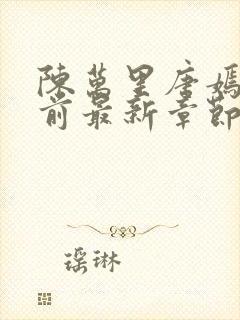 陳萬里唐嫣
前最新章節
瑶琳